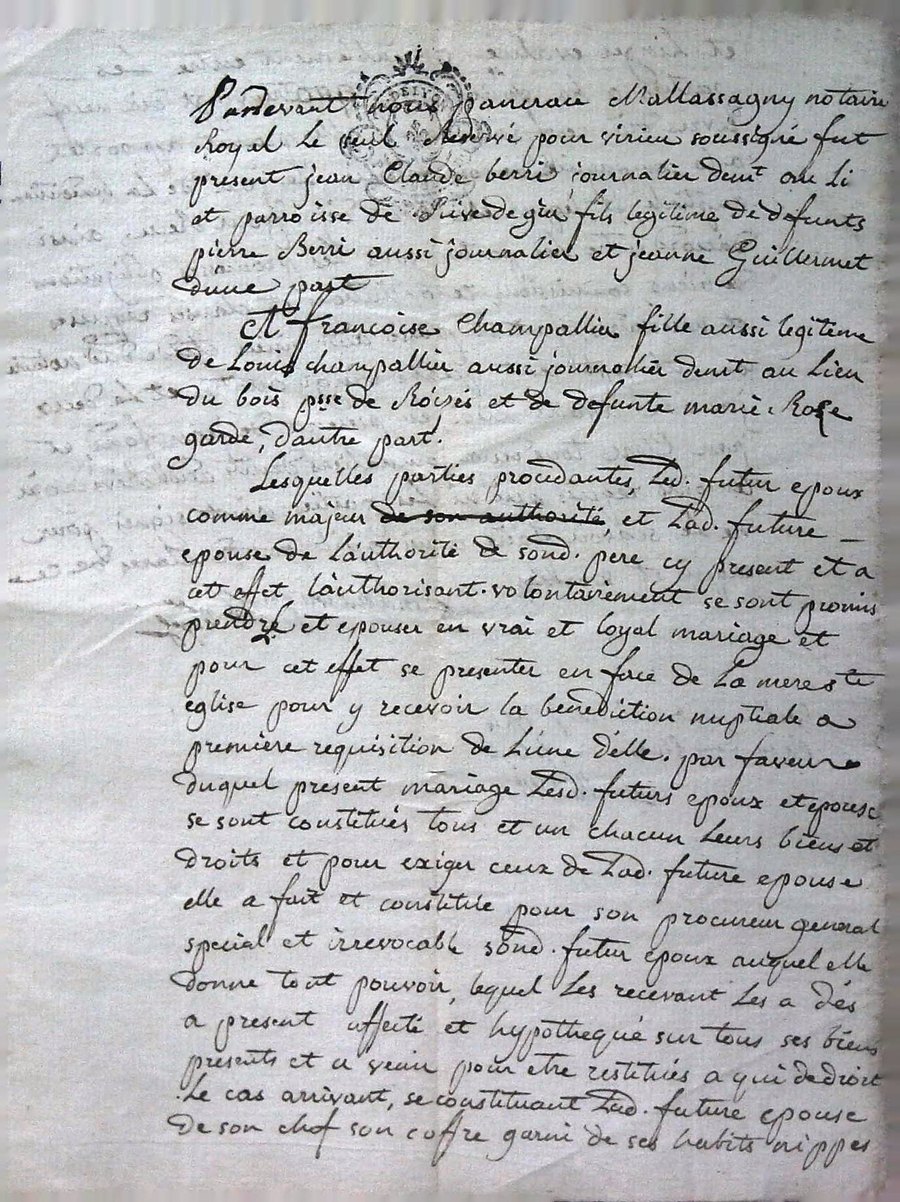 Pardevant nous pancrace Mallassagny notaire
Royal Le seul Reservé pour virieu soussigné fut
present jean Claude berri journalier demt au Li
et parroisse de fils legitime de defunts
pierre Berri aussi journalier et jeanne Guillermet
dune part
Et francoise Champallier fille aussi legitime
de Louis champallier aussi journalier demt au Lieu
du bois psse de et de defunte marie Rose
garde, d'autre part.
Lesquelles parties procedantes, Led. futur epoux
comme majeur de son authorité, et Lad. future
epouse de L'authorité de sond. pere cy present et a
cet effet l'authorisant. volontairement se sont promis
prendre et epouser en vrai et loyal mariage et
pour cet effet se presenter en face de La mere ste
eglise pour y recevoir la benediction nuptiale a
première requisition de L'une d'elle. par faveur
duquel present mariage Lesd. futurs epoux et epouse
se sont constitués tous et un chacun Leurs biens et
droits et pour exiger ceux de Lad. future epouse
elle a fait et constitué pour son procureur general
special et irrevocable sond. futur epoux auquel elle
donne tout pouvoir, lequel Les recevant Les a dés
a present affecté et hypothequé sur tous ses biens
presents et a venir pour etre restitués a qui de droit
Le cas arrivant, se constituant Lad. future epouse
de son chef son coffre garni de ses habits nippes